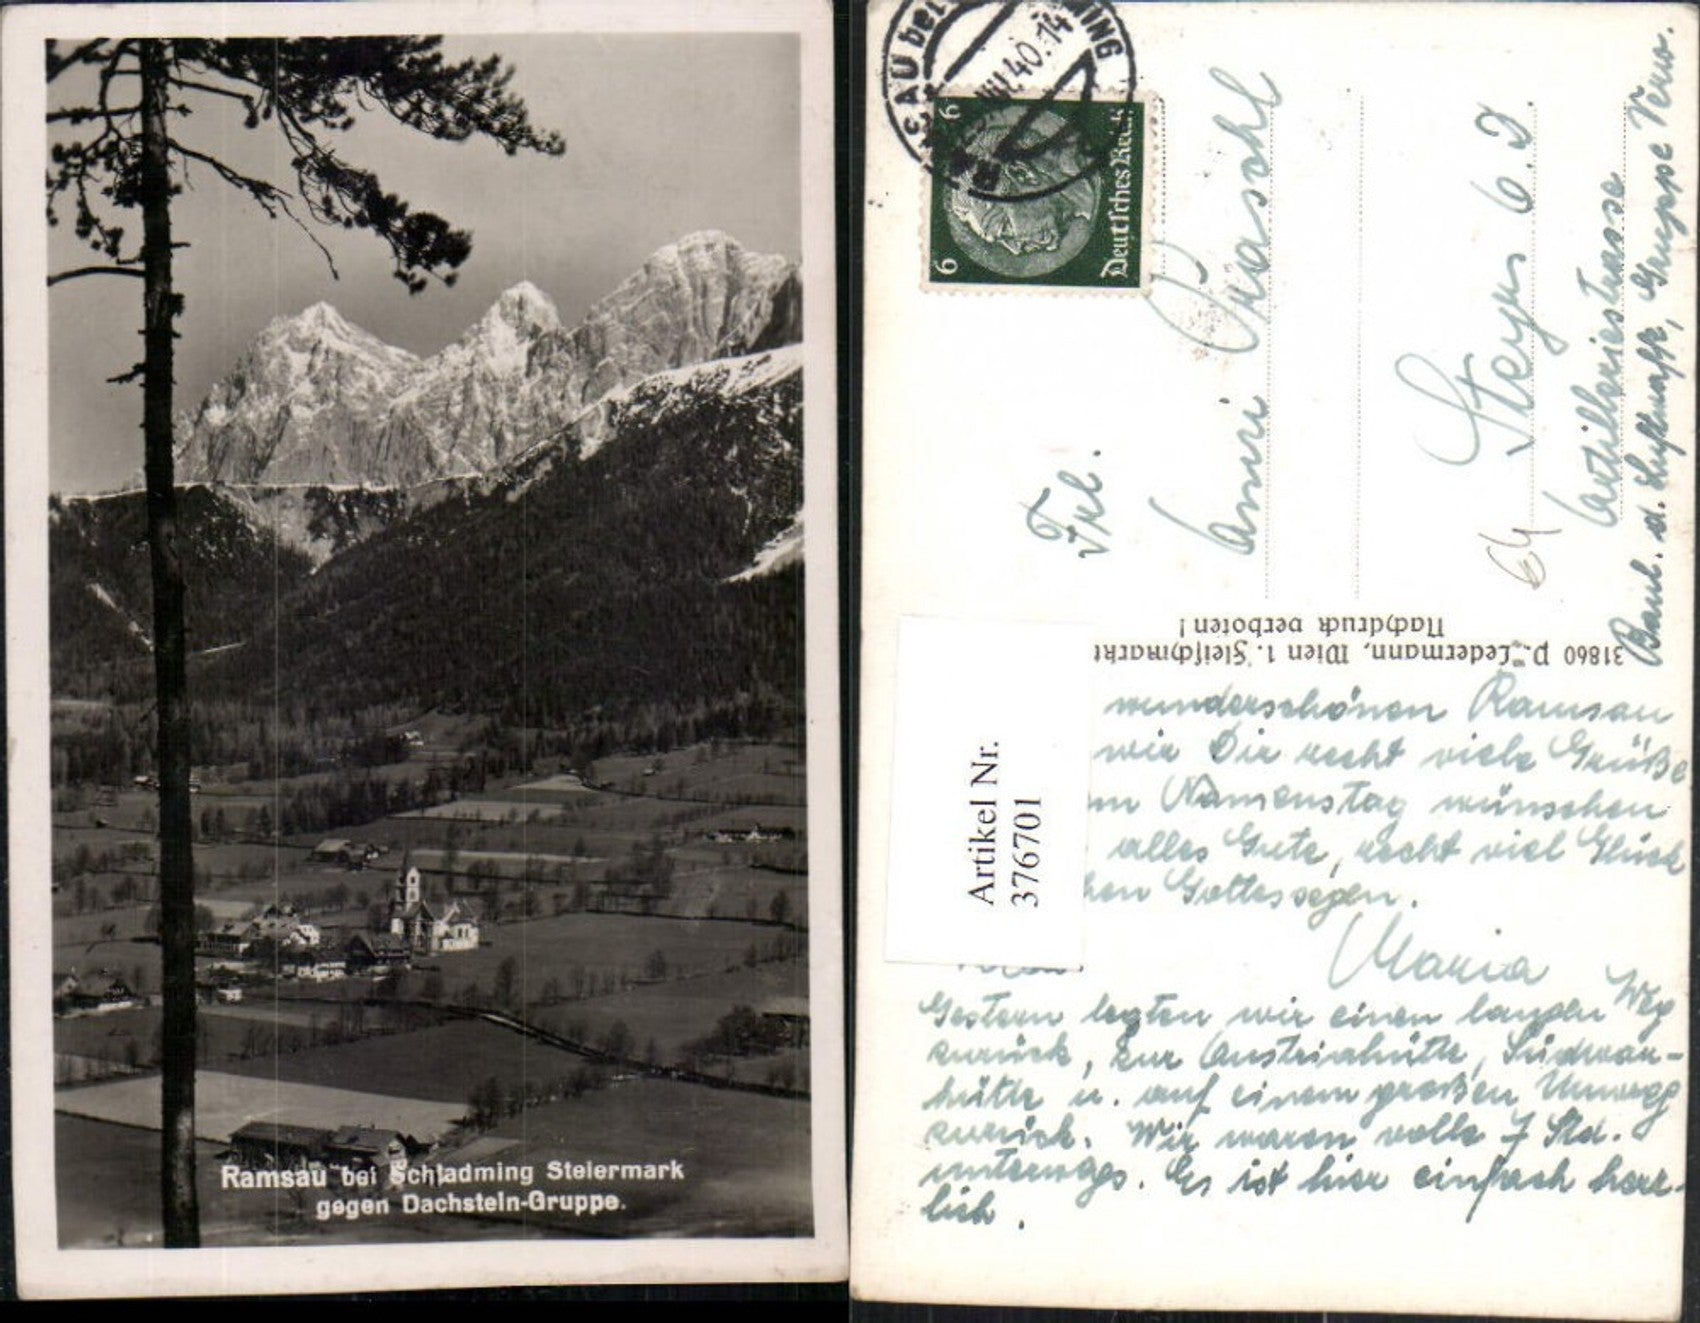 Ramsau bei Schladming Steiermark
gegen Dachstein-Gruppe.
RAMSAU bei SCHLADMING
VIII.40.-14
6 6
Deutsches Reich
Frl.
Anni Praschl
Steyr 6. D
Artilleriestrasse
Baul. d. Luftwaffe, Gruppe Verw.
64
31860 P. Ledermann, Wien 1. Fleischmarkt
Nachdruck verboten!
Artikel Nr.
376701
wunderschönen Ramsau
wir Dir recht viele Grüße
Namenstag wünschen
alles Gute, recht viel Glück
Gottessegen.
Maria
Gestern legten wir einen langen Weg
zurück, zur Austriahütte, Südwan-
hütte u. auf einem großen Umweg
zurück. Wir waren volle 7 Std.
unterwegs. Es ist hier einfach herr-
lich.